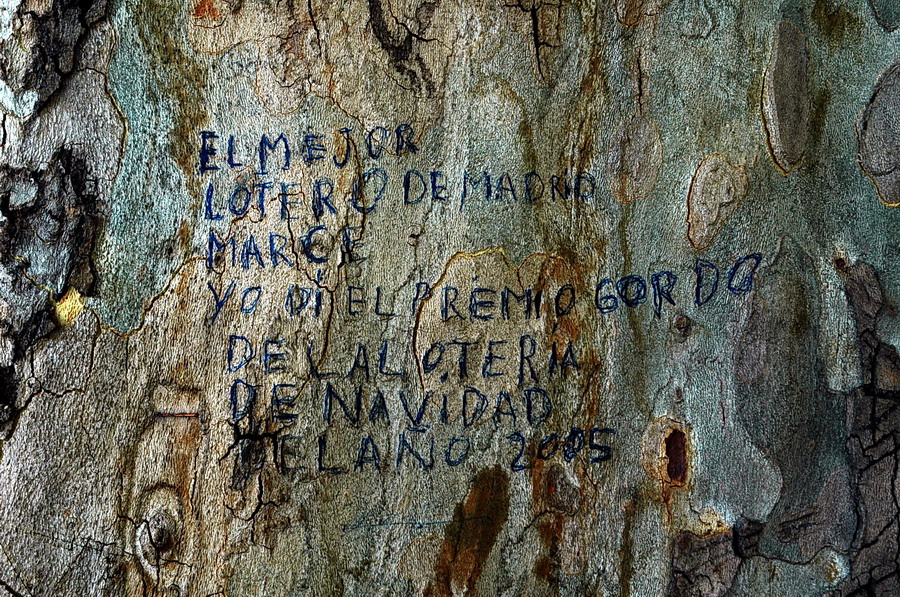 EL MEJOR
LOTERO DE MADRID
MARCE
YO DÍ EL PREMIO GORDO
DE LA LOTERÍA
DE NAVIDAD
DEL AÑO 2005